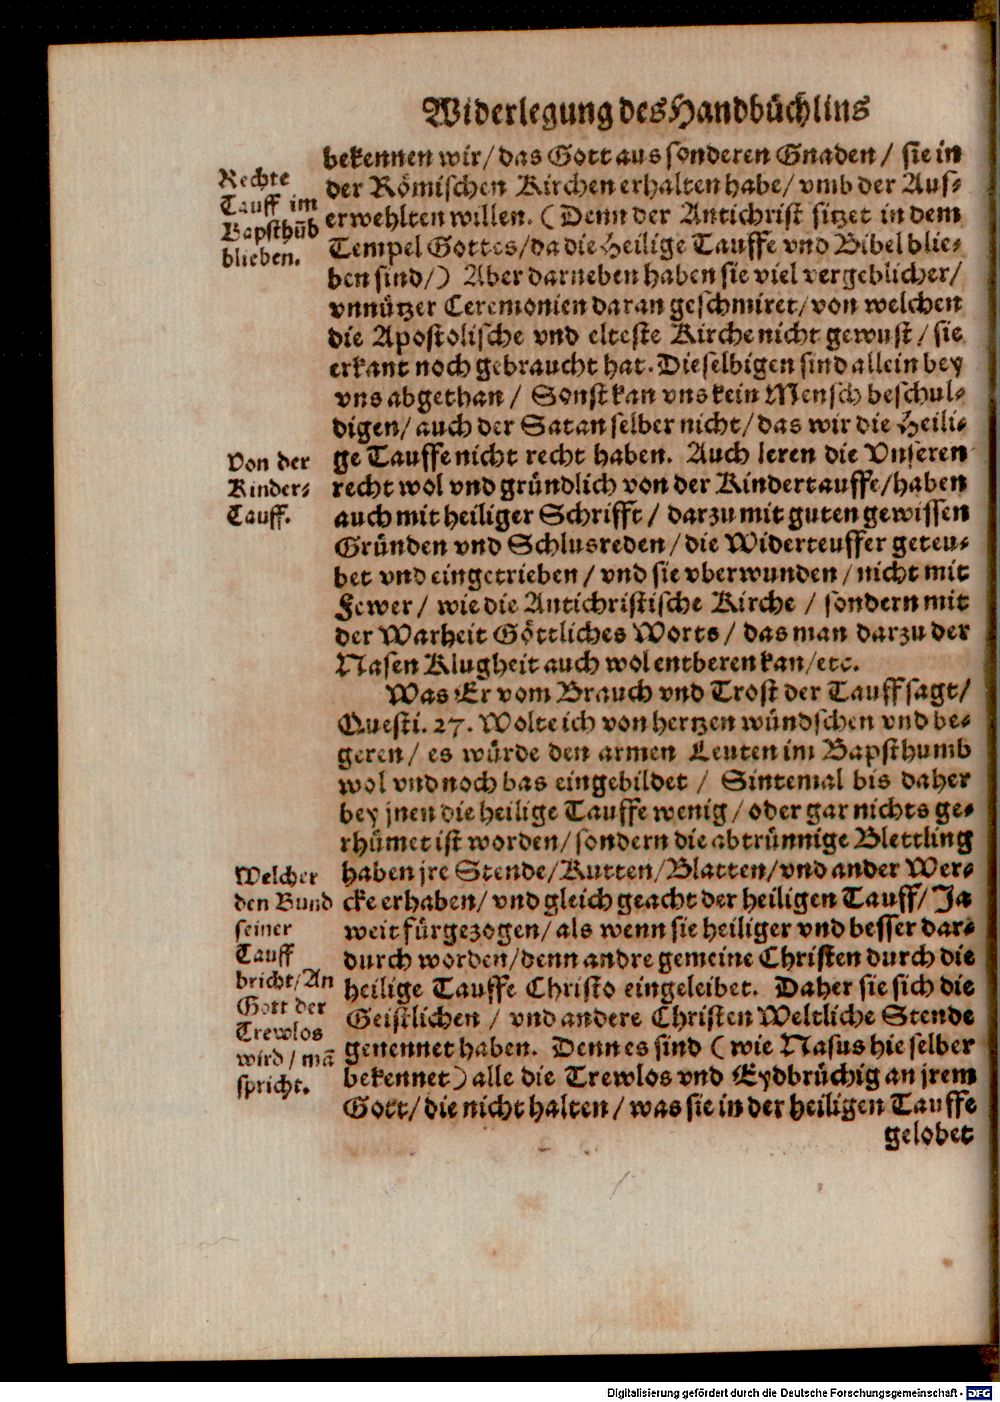 Widerlegung des Handbüchlins
bekennen wir/ das Gott aus sonderen Gnaden / sie in
der Römischen Kirchen erhalten habe/ vmb der Aus-
erwehlten willen. (Denn der Antichrist sitzet in dem
Tempel Gottes/ da die Heilige Tauffe vnd Bibel blie-
ben sind/) Aber darneben haben sie viel vergeblicher/
vnnützer Ceremonien daran geschmiret/ von welchen
die Apostolische vnd elteste Kirche nicht gewust / sie
erkant noch gebraucht hat. Dieselbigen sind allein bey
vns abgethan / Sonst kan vns kein Mensch beschul-
digen/ auch der Satan selber nicht/ das wir die Heili-
ge Tauffe nicht recht haben. Auch leren die Vnseren
recht wol vnd gründlich von der Kindertauffe/ haben
auch mit heiliger Schrifft / darzu mit guten gewissen
Gründen vnd Schlusreden / die Widerteuffer geteu-
bet vnd eingetrieben / vnd sie vberwunden / nicht mit
Fewer / wie die Antichristische Kirche / sondern mit
der Warheit Göttliches Worts / das man darzu der
Nasen Klugheit auch wol entberen kan/ etc.
Was Er vom Brauch vnd Trost der Tauff sagt/
Questi. 27. Wolte ich von hertzen wündschen vnd be-
geren / es würde den armen Leuten im Bapsthumb
wol vnd noch bas eingebildet / Sintemal bis daher
bey jnen die heilige Tauffe wenig / oder gar nichts ge-
rhümet ist worden/ sondern die abtrünnige Blettling
haben jre Stende/ Kutten/ Blatten/ vnd ander Wer-
cke erhaben/ vnd gleich geacht der heiligen Tauff/ Ja
weit fürgezogen/ als wenn sie heiliger vnd besser dar-
durch worden/ denn andre gemeine Christen durch die
heilige Tauffe Christo eingeleibet. Daher sie sich die
Geistlichen / vnd andere Christen Weltliche Stende
genennet haben. Denn es sind (wie Nasus hie selber
bekennet) alle die Trewlos vnd Eydbrüchig an jrem
Gott/ die nicht halten / was sie in der heiligen Tauffe
gelobet
Rechte
Tauff im
Bapsthūb
blieben.
Von der
Kinder-
Tauff.
Welcher
den Bund
seiner
Tauff
bricht/ An
Gott der
Trewlos
wird / mā
spricht.
Digitalisierung gefördert durch die Deutsche Forschungsgemeinschaft - DFG